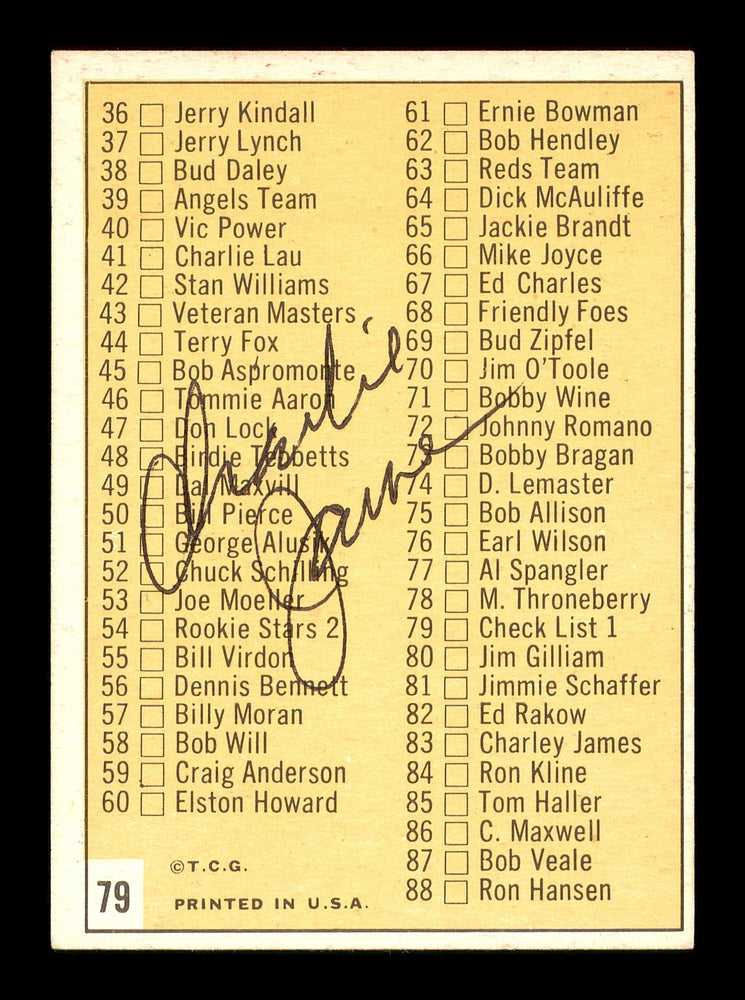 36 Jerry Kindall
37 Jerry Lynch
38 Bud Daley
39 Angels Team
40 Vic Power
41 Charlie Lau
42 Stan Williams
43 Veteran Masters
44 Terry Fox
45 Bob Aspromonte
46 Tommie Aaron
47 Don Lock
48 Birdie Tebbetts
49 Dal Maxvill
50 Bill Pierce
51 George Alusik
52 Chuck Schilling
53 Joe Moeller
54 Rookie Stars 2
55 Bill Virdon
56 Dennis Bennett
57 Billy Moran
58 Bob Will
59 Craig Anderson
60 Elston Howard
61 Ernie Bowman
62 Bob Hendley
63 Reds Team
64 Dick McAuliffe
65 Jackie Brandt
66 Mike Joyce
67 Ed Charles
68 Friendly Foes
69 Bud Zipfel
70 Jim O'Toole
71 Bobby Wine
72 Johnny Romano
73 Bobby Bragan
74 D. Lemaster
75 Bob Allison
76 Earl Wilson
77 Al Spangler
78 M. Throneberry
79 Check List 1
80 Jim Gilliam
81 Jimmie Schaffer
82 Ed Rakow
83 Charley James
84 Ron Kline
85 Tom Haller
86 C. Maxwell
87 Bob Veale
88 Ron Hansen
79
©T.C.G.
PRINTED IN U.S.A.